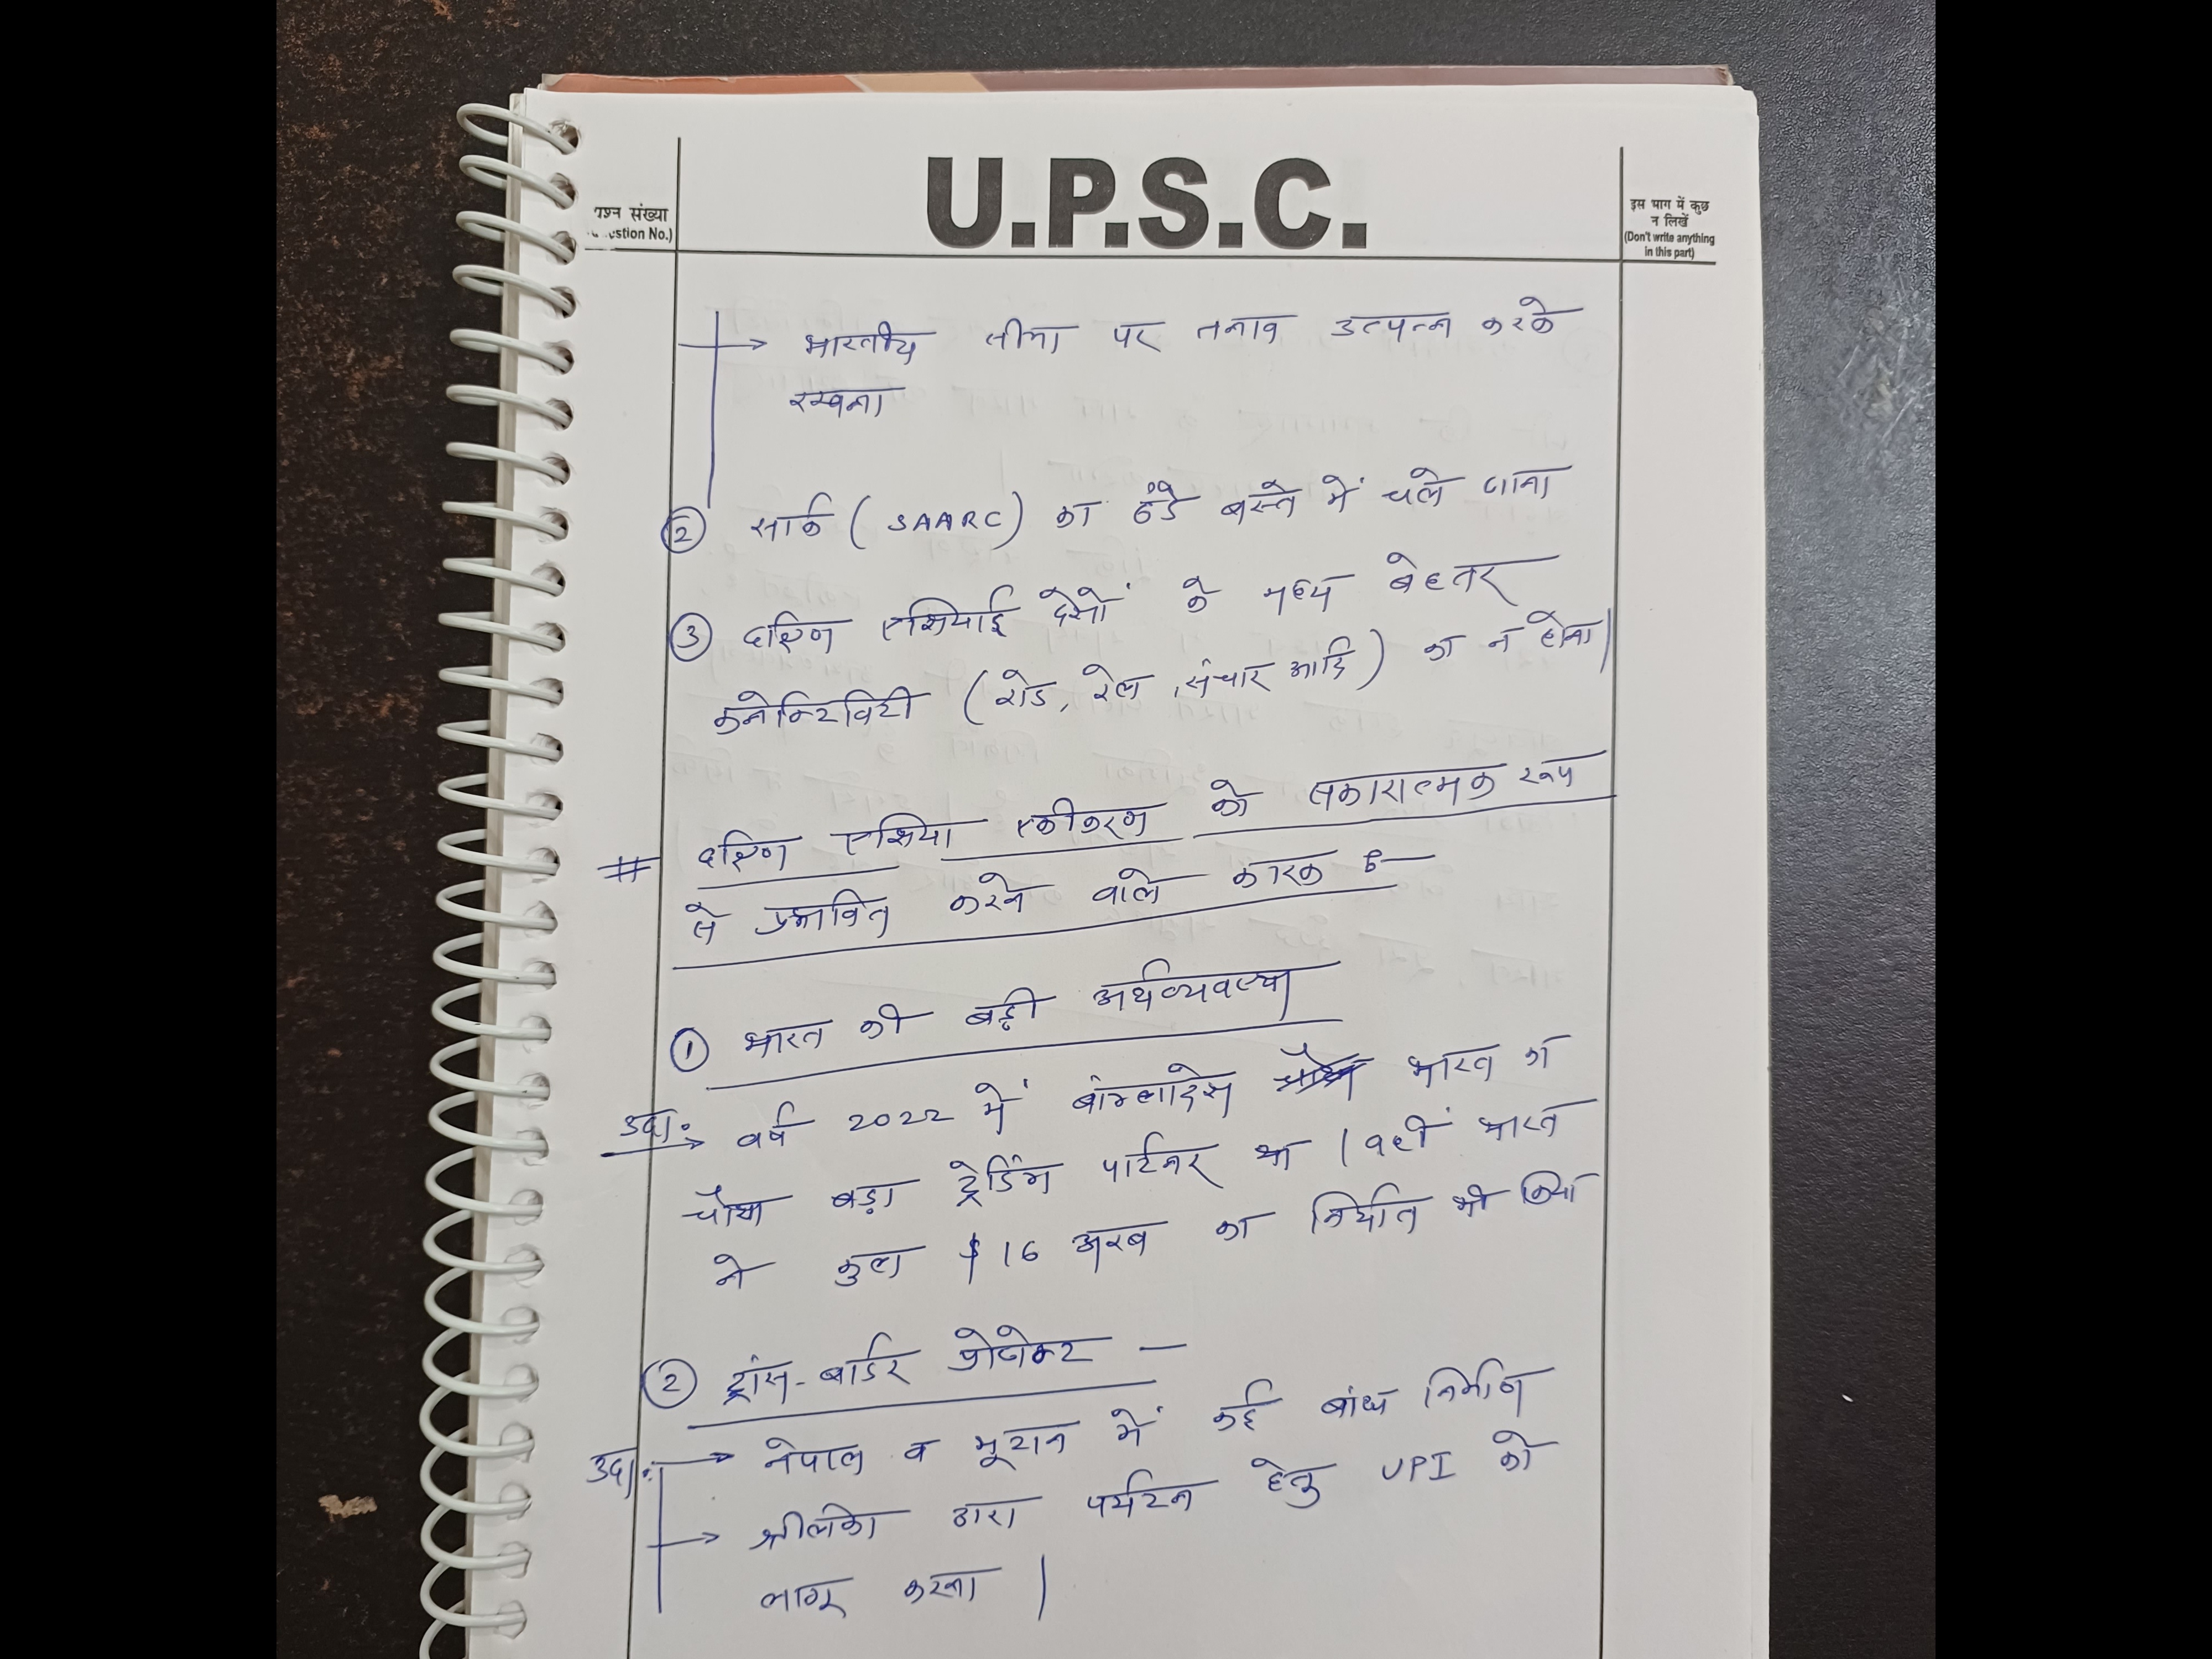 U.P.S.C.
प्रश्न संख्या
stion No.)
इस भाग में कुछ
न लिखें
(Don't write anything
in this part)
→ भारतीय सीमा पर तनाव उत्पन्न करके
रखना
② सार्क (SAARC) का ठंडे बस्ते में चले जाना
③ दक्षिण एशियाई देशों के मध्य बेहतर
कनेक्टिविटी (रोड, रेल, संचार आदि) का न होना|
# दक्षिण एशिया एकीकरण को सकारात्मक रूप
से प्रभावित करने वाले कारक है—
① भारत की बड़ी अर्थव्यवस्था
उदा. → वर्ष 2022 में बांग्लादेश भारत का
चौथा बड़ा ट्रेडिंग पार्टनर था | वहीं भारत
ने कुल $16 अरब का निर्यात भी किया
② ट्रांस-बार्डर प्रोजेक्ट —
उदा. → नेपाल व भूटान में कई बांध निर्माण
→ श्रीलंका द्वारा पर्यटन हेतु UPI को
लागू करना |